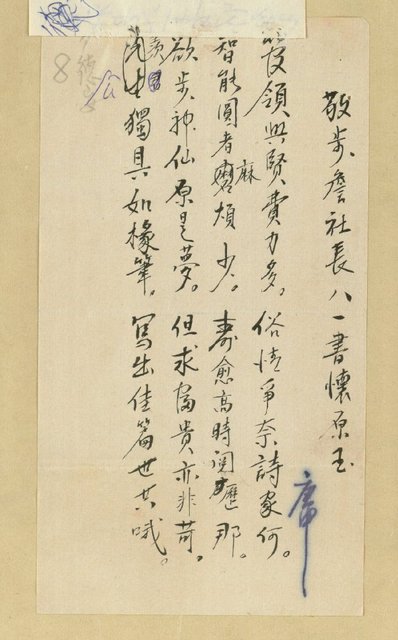 敬步詹社長八一書懷原玉
領與賢費力多。俗情爭奈詩家何。
智能圓者磨麻煩少。壽愈高時閱歷那。
欲步神仙原是夢。但求富貴亦非苛。
羨君
獨具如椽筆。寫出佳篇世共哦。
德
8